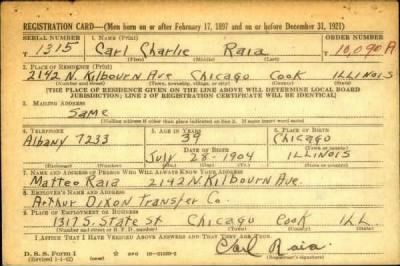 REGISTRATION CARD—(Men born on or after February 17, 1897 and on or before December 31, 1921)
SERIAL NUMBER 1. NAME (Print) ORDER NUMBER
T 1315 Carl Charlie Raia 10,090 A
(First) (Middle) (Last)
2. PLACE OF RESIDENCE (Print)
2142 N. Kilbourn Ave Chicago Cook ILLINOIS
(Number and street) (Town, township, village, or city) (County) (State)
[THE PLACE OF RESIDENCE GIVEN ON THE LINE ABOVE WILL DETERMINE LOCAL BOARD
JURISDICTION; LINE 2 OF REGISTRATION CERTIFICATE WILL BE IDENTICAL]
3. MAILING ADDRESS
Same
[Mailing address if other than place indicated on line 2. If same insert word same]
4. TELEPHONE 5. AGE IN YEARS 6. PLACE OF BIRTH
Albany 7233 39 Chicago
DATE OF BIRTH (Town or county)
July 28-1904 ILLINOIS
(Mo.) (Day) (Yr.) (State or country)
7. NAME AND ADDRESS OF PERSON WHO WILL ALWAYS KNOW YOUR ADDRESS
Matteo Raia 2142 N Kilbourn Ave.
8. EMPLOYER'S NAME AND ADDRESS
Arthur Dixon Transfer Co.
9. PLACE OF EMPLOYMENT OR BUSINESS
1317 S. State St Chicago Cook ILL
(Number and street or R. F. D. number) (Town) (County) (State)
I AFFIRM THAT I HAVE VERIFIED ABOVE ANSWERS AND THAT THEY ARE TRUE.
D. S. S. Form 1
(Revised 1-1-42) (over) Carl Raia
(Registrant's signature)